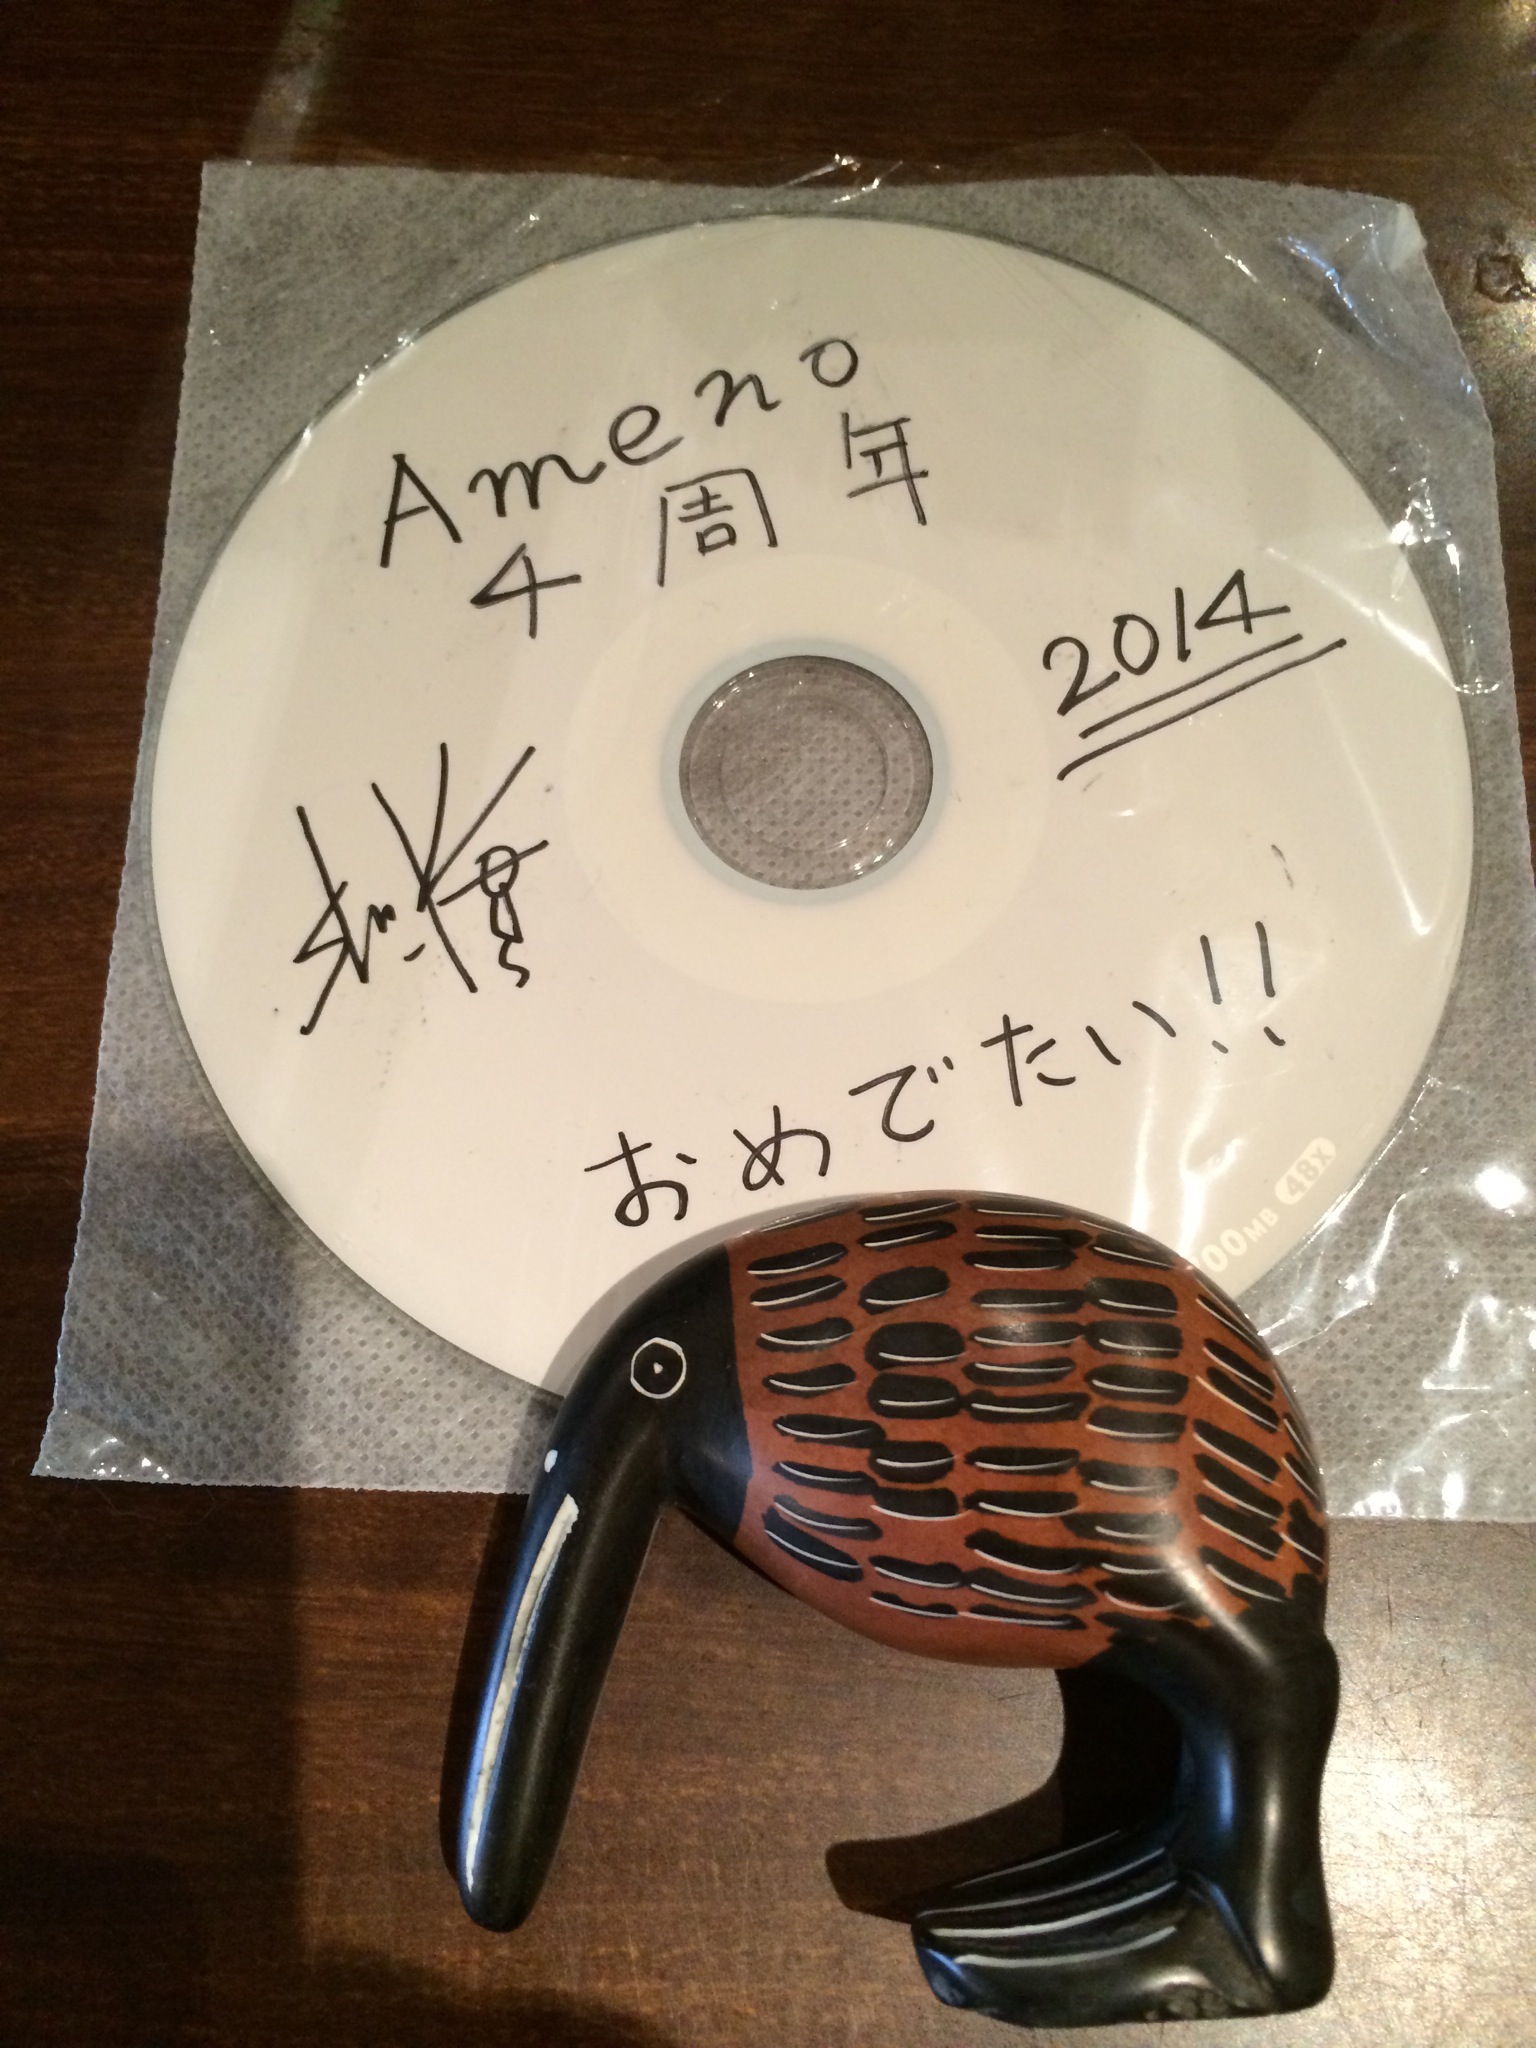 Ameno
4周年
2014
おめでたい!!
48X
00MB